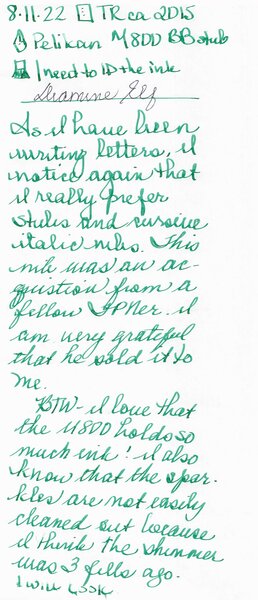 8.11.22 TR ca 2015
Pelikan M800 BB stub
I need to ID the ink
Diamine Elf
As I have been
writing letters, I
notice again that
I really prefer
stubs and cursive
italic nibs. This
nib was an ac-
quistion from a
fellow FPNer. I
am very grateful
that he sold it to
me.
BTW - I love that
the M800 holds so
much ink! I also
know that the spar-
kles are not easily
cleaned out because
I think the shimmer
was 3 fills ago.
I will